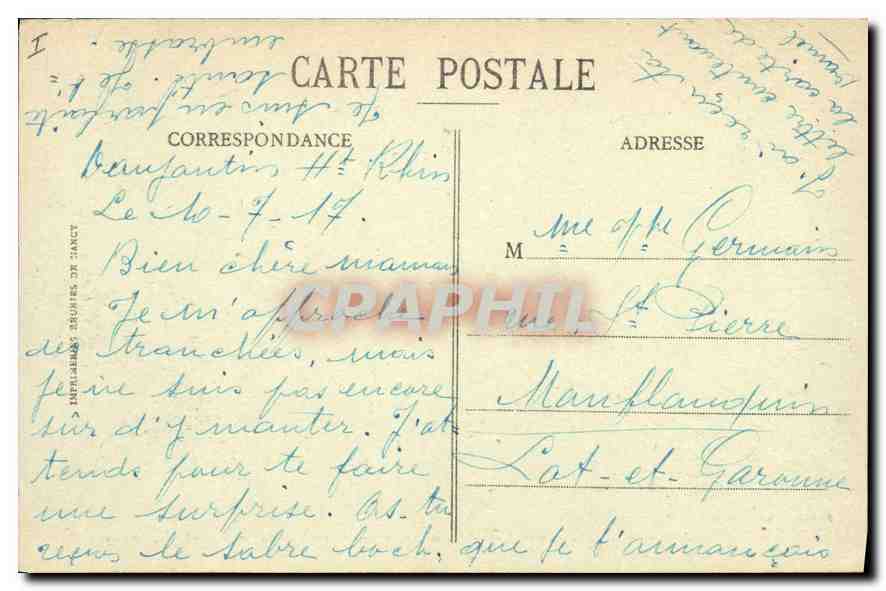 CARTE POSTALE
CORRESPONDANCE
ADRESSE
Vaufantin Ht Rhin
Le 10-7-17.
Bien chère maman
Je m'approche
des tranchées, mais
je ne suis pas encore
sur d'y monter. J'at-
tends pour te faire
une surprise. As-tu
reçus le sabre boch. que je t'annonçais
Je suis en parfaite
santé. Je t'
embrasse.
I
J'ai reçu ta
lettre contenant
la carte de
M me Vve Germain
en St Pierre
Monflanquin
Lot-et-Garonne
IMPRIMERIES REUNIES DE NANCY
CPAPHIL